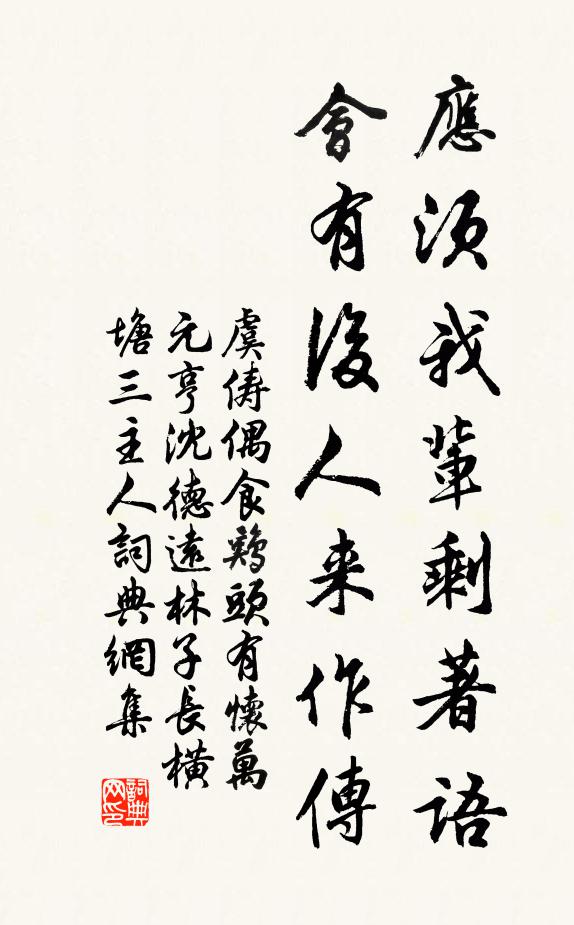 應須我輩剩著語
會有後人来作傳
虞儔偶食鷄頭有懷萬
元亨沈德遠林子長横
塘三主人詞典網集
詞典网印